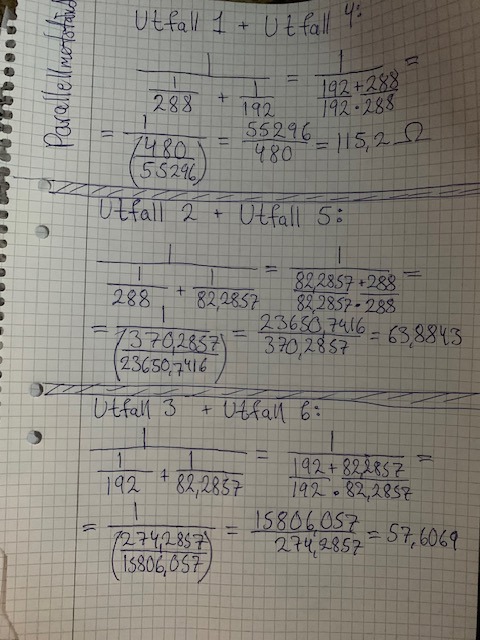 Parallellmotstånd
Utfall 1 + Utfall 4:
1 / (1/288 + 1/192) = 1 / ((192+288)/(192·288)) =
= 1 / (480/55296) = 55296/480 = 115,2 Ω
Utfall 2 + Utfall 5:
1 / (1/288 + 1/82,2857) = 1 / ((82,2857+288)/(82,2857·288)) =
= 1 / (370,2857/23650,7416) = 23650,7416/370,2857 = 63,8843
Utfall 3 + Utfall 6:
1 / (1/192 + 1/82,2857) = 1 / ((192+82,2857)/(192·82,2857)) =
= 1 / (274,2857/15806,057) = 15806,057/274,2857 = 57,6069